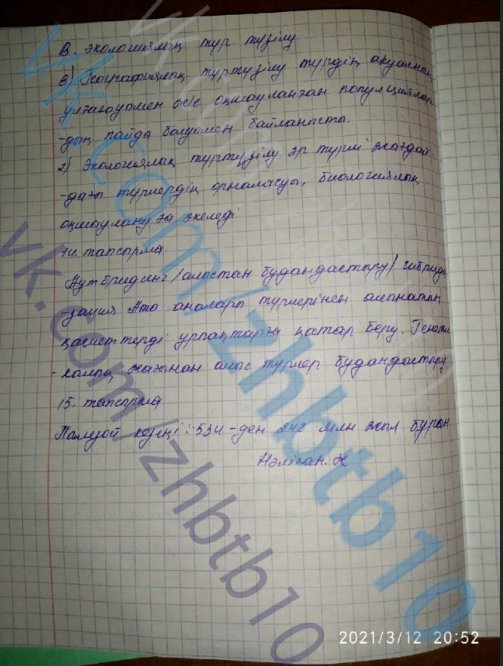 В. экологиялық түр түзілу
в) Географиялық түртүзілу түрдің ареалның
ұлғаюумен және оқшауланған популяциялар
-дың пайда болуымен байланысты.
2) Экологиялық түртүзілу әр түрлі жағдай
-дағы түрлердің орналасуы, биологиялық
оқшаулану ға әкеледі
14. тапсырма
Аутбридинг /алыстан будандастыру/ гибриди
-зация Ата аналары түрлерінен алынатын
қасиеттерді ұрпақтарға қатар беру. Генети
-калық жағынан алыс түрлер будандастыру
15. тапсырма
Палезой кезеңі: 534-ден 248 млн жыл бұрын
vk.com-zhbtb10
vk.com/zhbtb10
2021/3/12 20:52